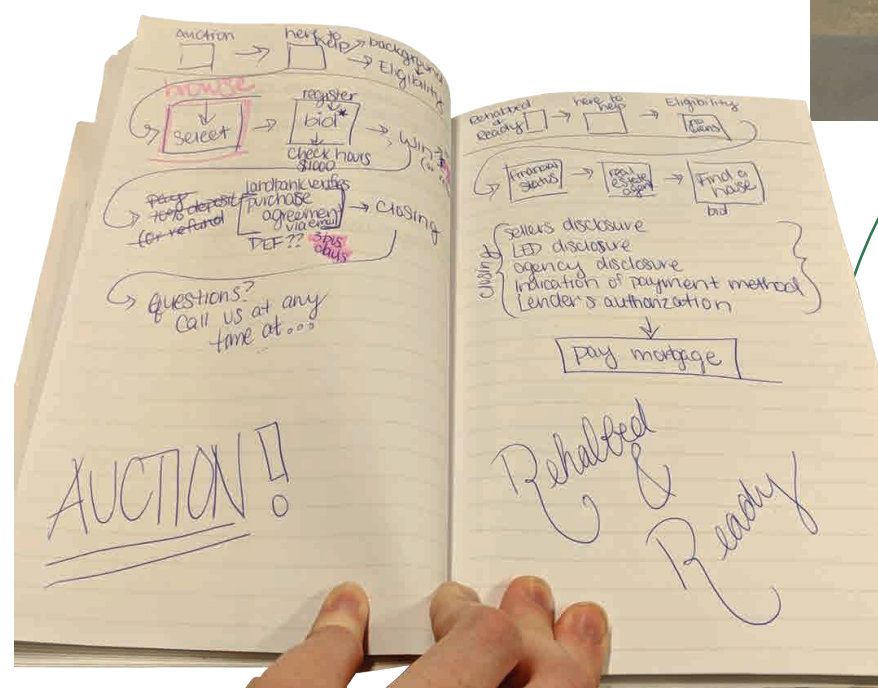 auction
here to help
background
Eligibility
browse
select
register
bid*
check hours
$1000
win
pays
10% deposit
(or refund)
landbank verifies
purchase
agreement
via email
DEF??
3 bus
days
closing
questions?
call us at any
time at...
AUCTION!
Rehabbed
&
Ready
here to
help
Eligibility
Financial
status
real
estate
agent
Find a
hase
bid
closing
sellers disclosure
LED disclosure
agency disclosure
Indication of payment method
Lender's authorization
pay mortgage
Rehabbed
&
Ready